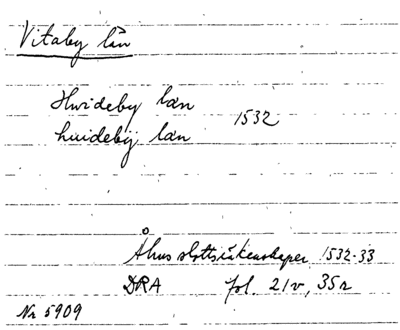 Vitaby län
Hwideby læn 1532
huidebÿ læn
Åhus slottsräkenskaper 1532-33
DRA fol. 21v, 35r
Nr 5909